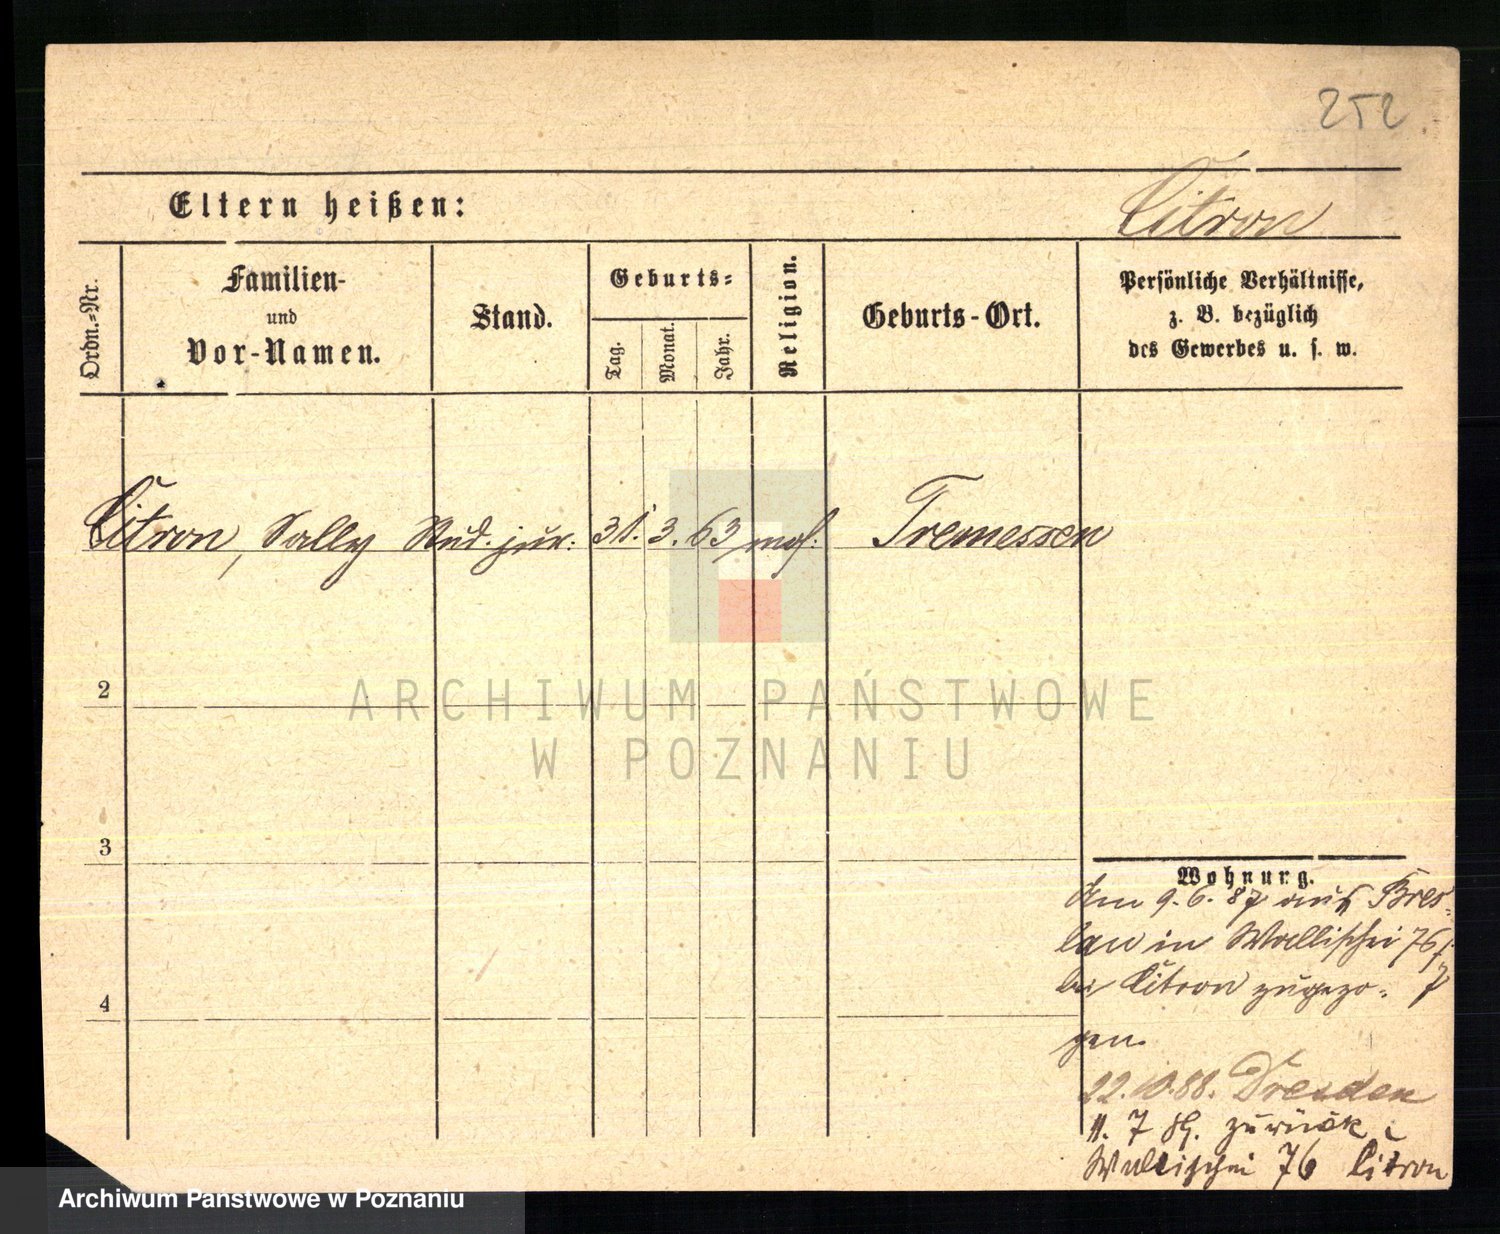 252
Eltern heißen:
Citron
Ordn.-Nr.
Familien-
und
Vor-Namen.
Stand.
Geburts-
Tag.
Monat.
Jahr.
Religion.
Geburts-Ort.
Persönliche Verhältnisse,
z. B. bezüglich
des Gewerbes u. s. w.
Citron, Sally Stud. jur. 31. 3. 63 mos. Tremessen
2
ARCHIWUM PAŃSTWOWE
W POZNANIU
3
Wohnung.
Am 9.6.87 aus Bres-
lau in Wallischei 76/
7
bei Citron zugezo-
4
gen.
22.10.88. Dresden
11. 7 89. zurück
Wallischei 76 Citron
Archiwum Państwowe w Poznaniu